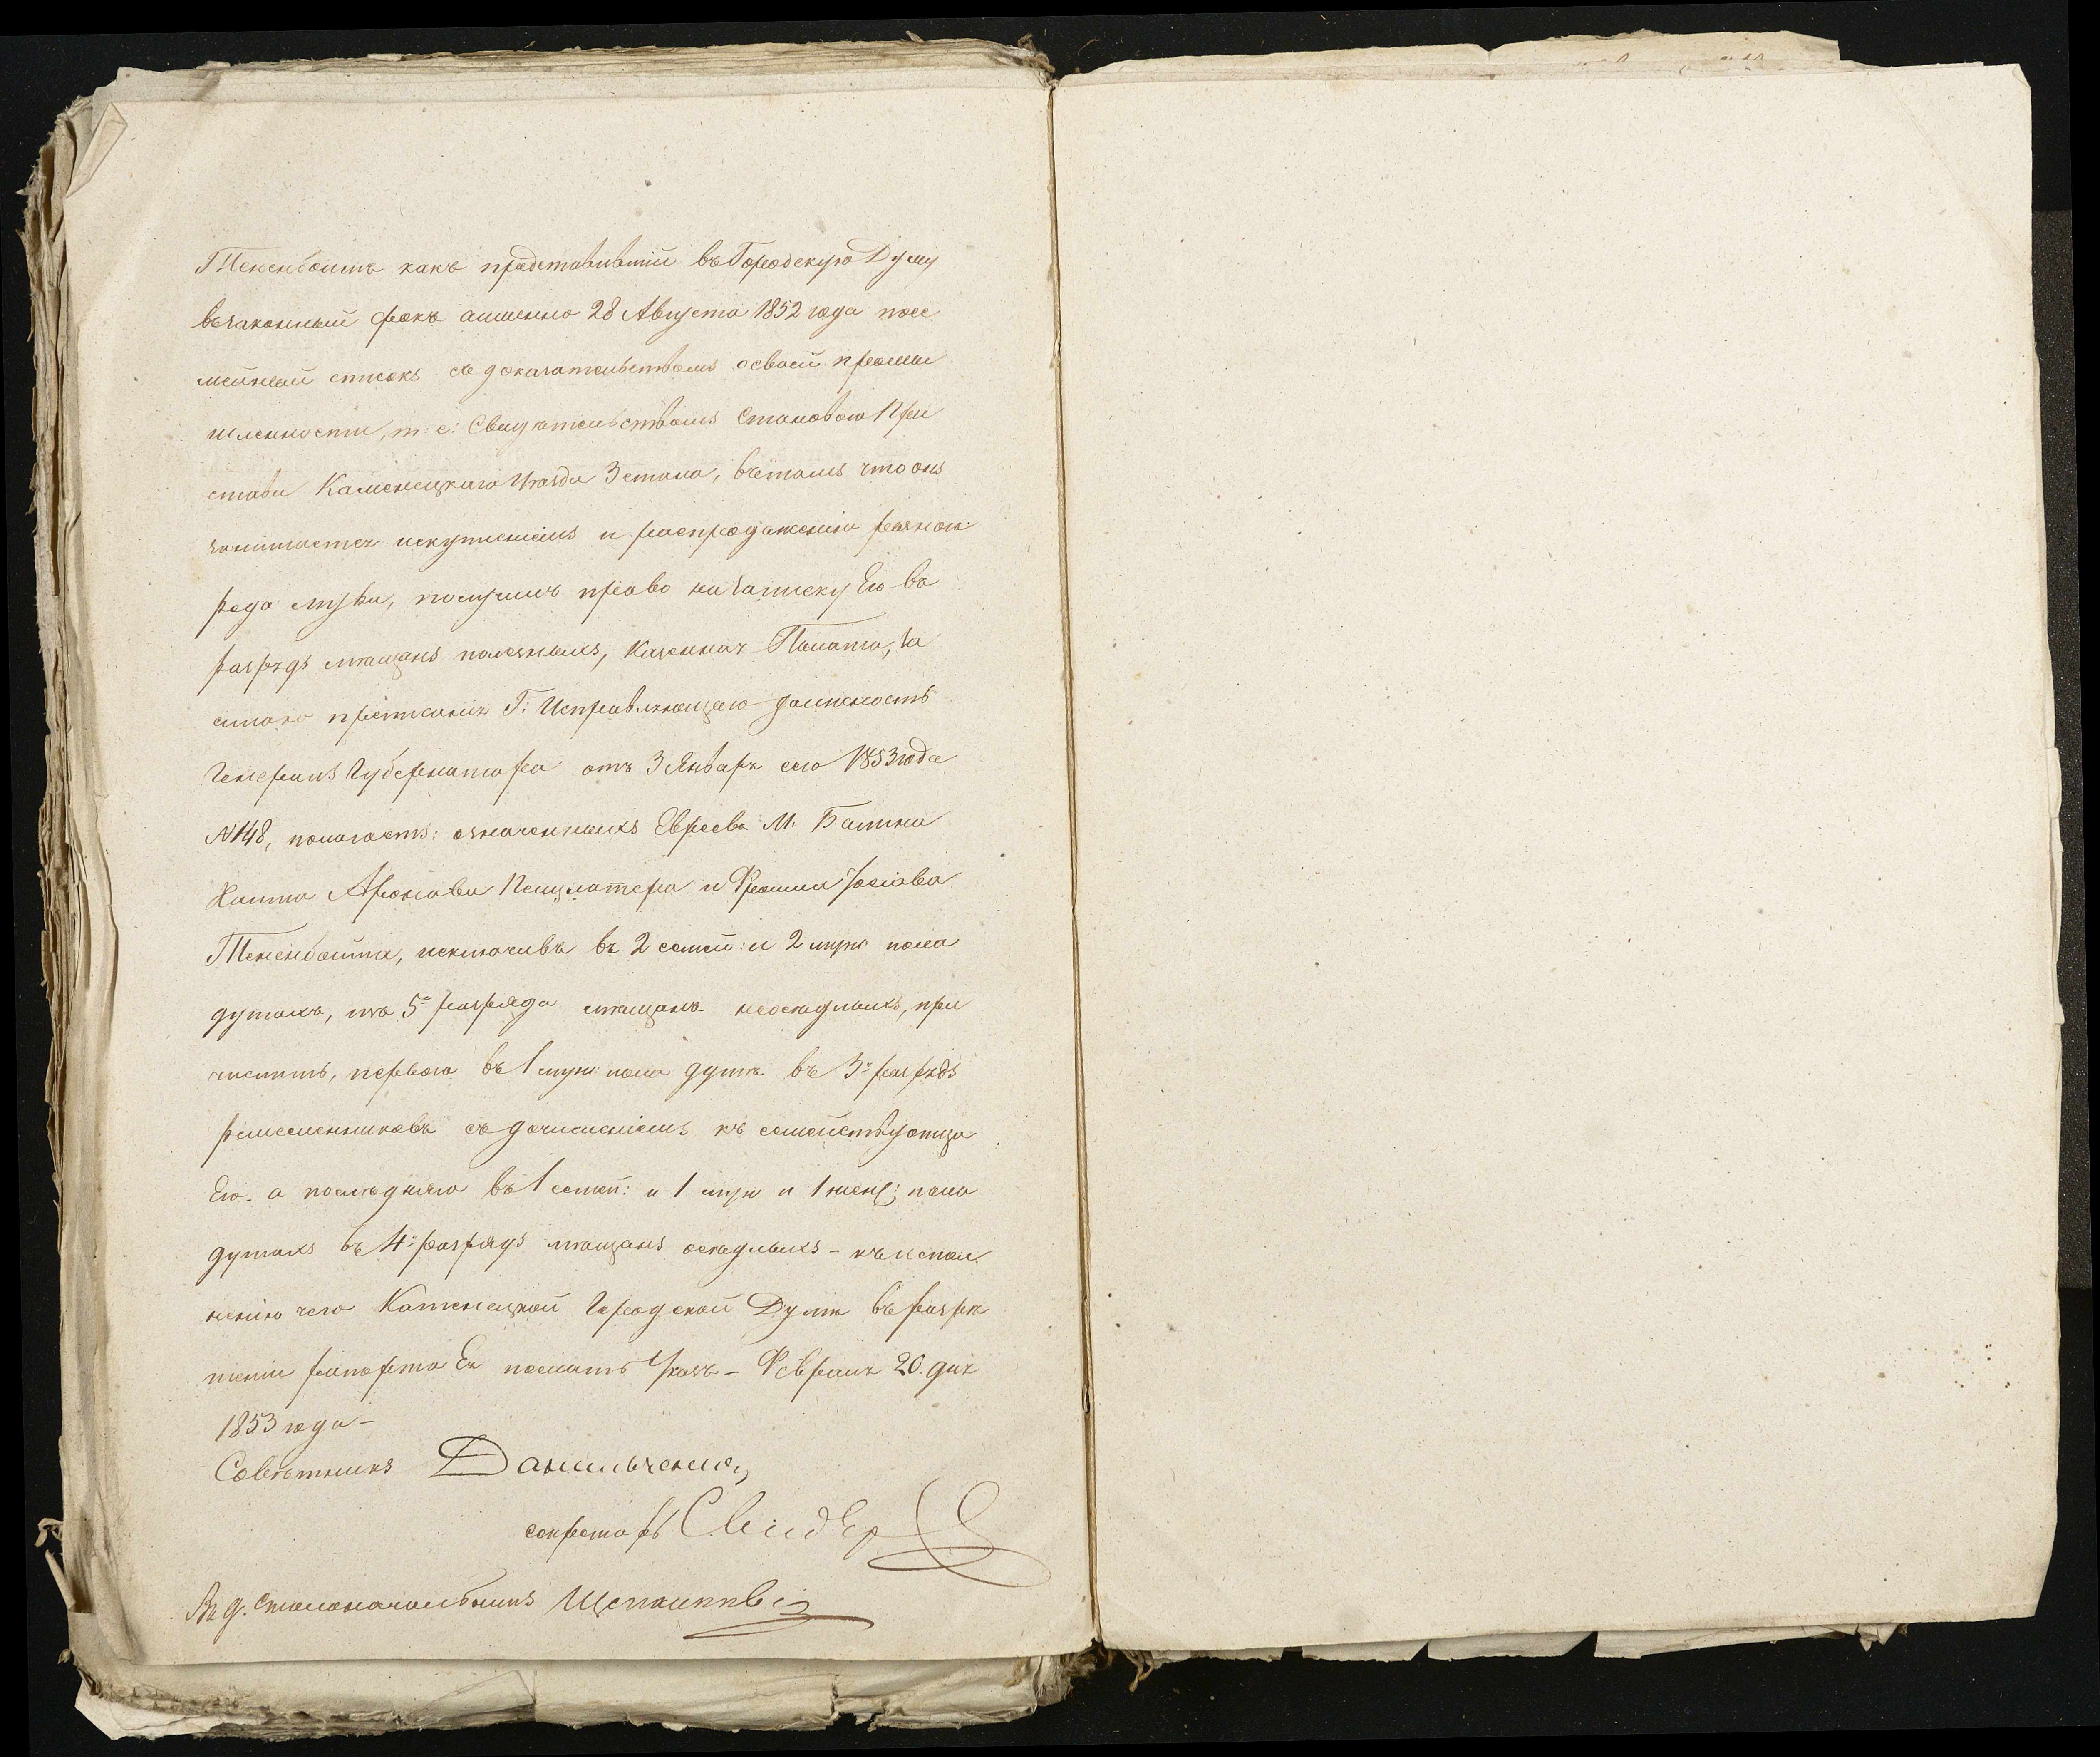 Тененбоимъ какъ представившій въ Городскую Думу
въ законный срокъ а именно 28 Августа 1852 года посе
мейный списокъ съ доказательствомъ освоей промы
шленности, т: е: Свидѣтельствомъ Становаго При
става Каменецкаго Уѣзда 3 стана, въ томъ что онъ
занимается искупленіемъ и распродажею разнаго
рода муки, получилъ право на записку Его въ
разрядъ мѣщанъ осѣдлыхъ, Казенная Палата, за
силою предписанія Г: Исправляющаго должность
Генералъ Губернатора отъ 3 Января сего 1853 года
N 148, полагаетъ: означенныхъ Евреевъ М. Балина
Хаима Аронова и Фроима Іосіова
Тененбойма, исключивъ въ 2 семей: и 2 муж: пола
душахъ, изъ 5го разряда мѣщанъ неосѣдлыхъ, при
числить, перваго въ 1 муж: пола душѣ въ 3й разрядъ
ремесленниковъ съ дочисленіемъ къ семейству отца
Его. а послѣдняго въ 1 семей: и 1 муж и 1 женс: пола
душахъ въ 4й разрядъ мѣщанъ осѣдлыхъ – къ испол
ненію чего Каменецкой Городской Думѣ въ разрѣ
шеніи рапорта Ея послать Указъ – Февраля 20. дня
1853 года –
Совѣтникъ Данильченко,
секретарь Свидер
Столоначальникъ